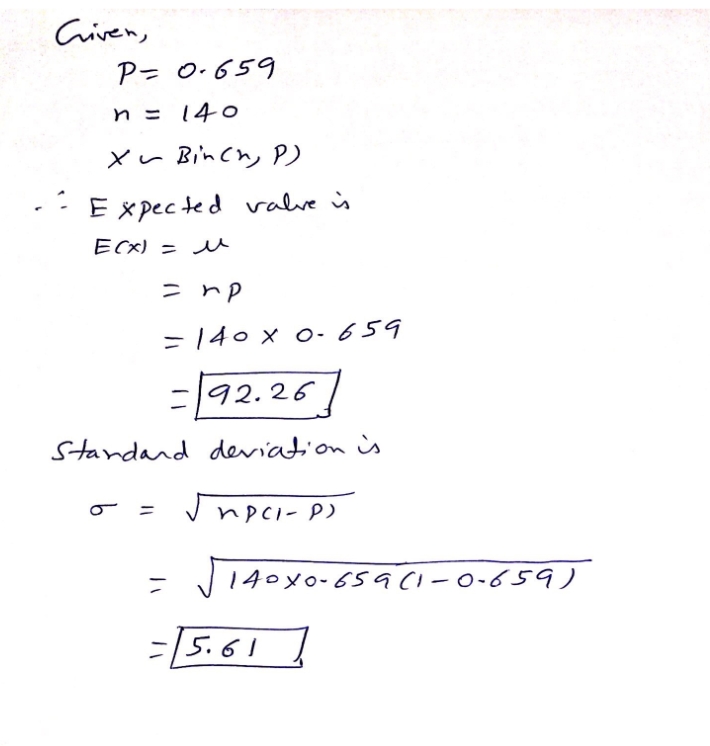 Given,
P = 0.659
n = 140
X ~ Bin(n, P)
∴ Expected value is
E(X) = μ
= np
= 140 × 0.659
= 92.26
Standard deviation is
σ = √np(1-P)
= √140×0.659(1-0.659)
= 5.61